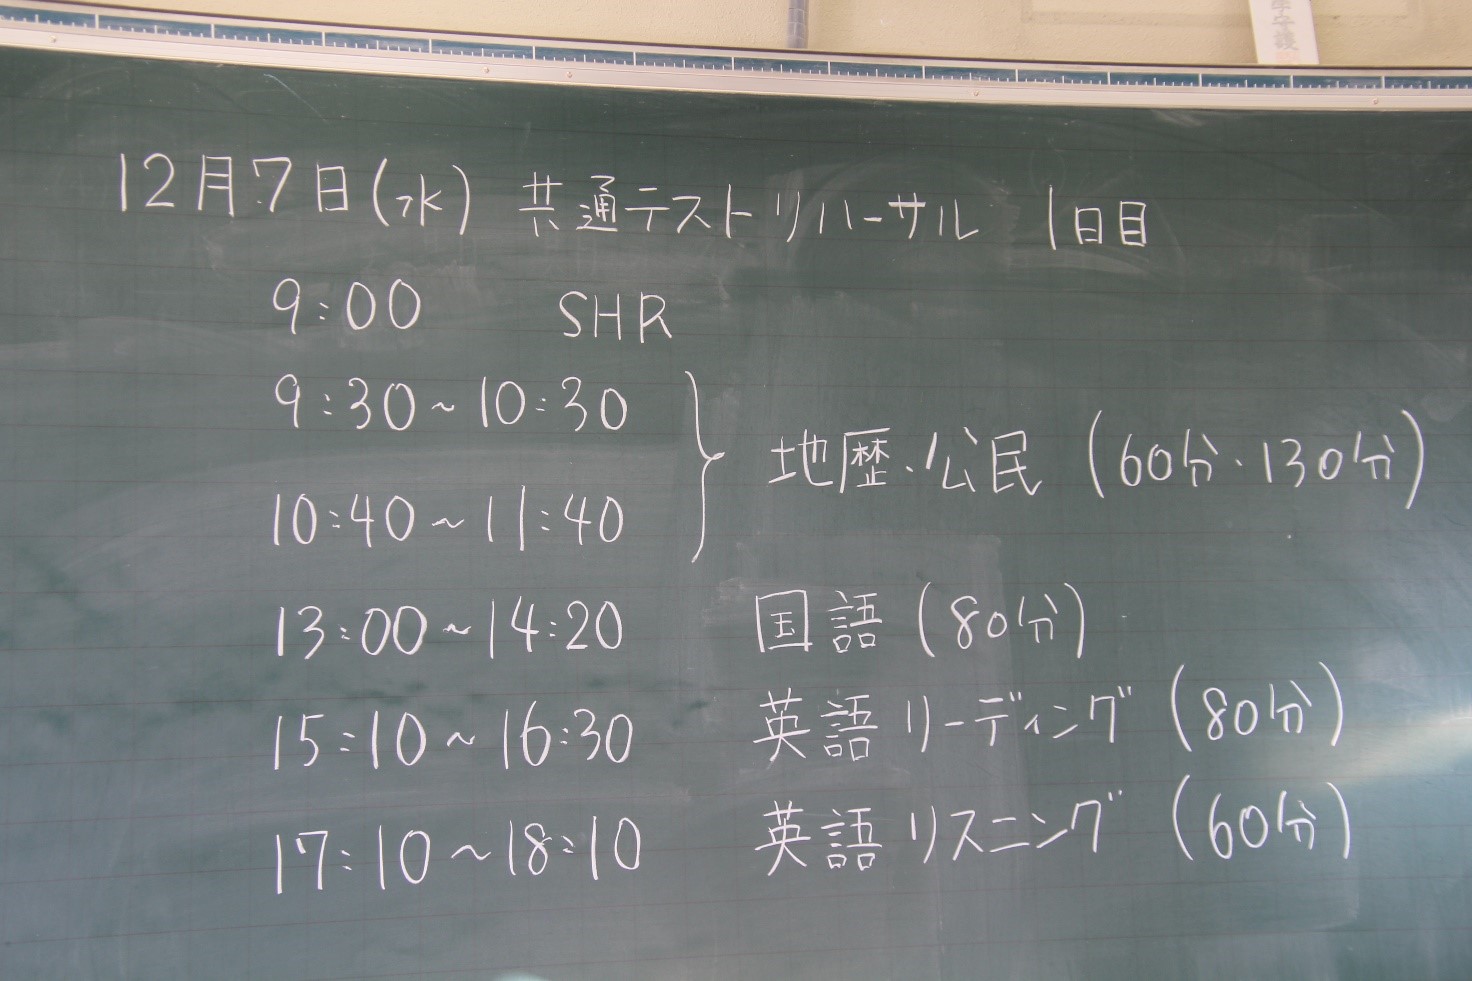 12月7日(水) 共通テストリハーサル 1日目
9:00 SHR
9:30~10:30
地歴・公民 (60分・130分)
10:40~11:40
13:00~14:20 国語 (80分)
15:10~16:30 英語リーディング (80分)
17:10~18:10 英語リスニング (60分)